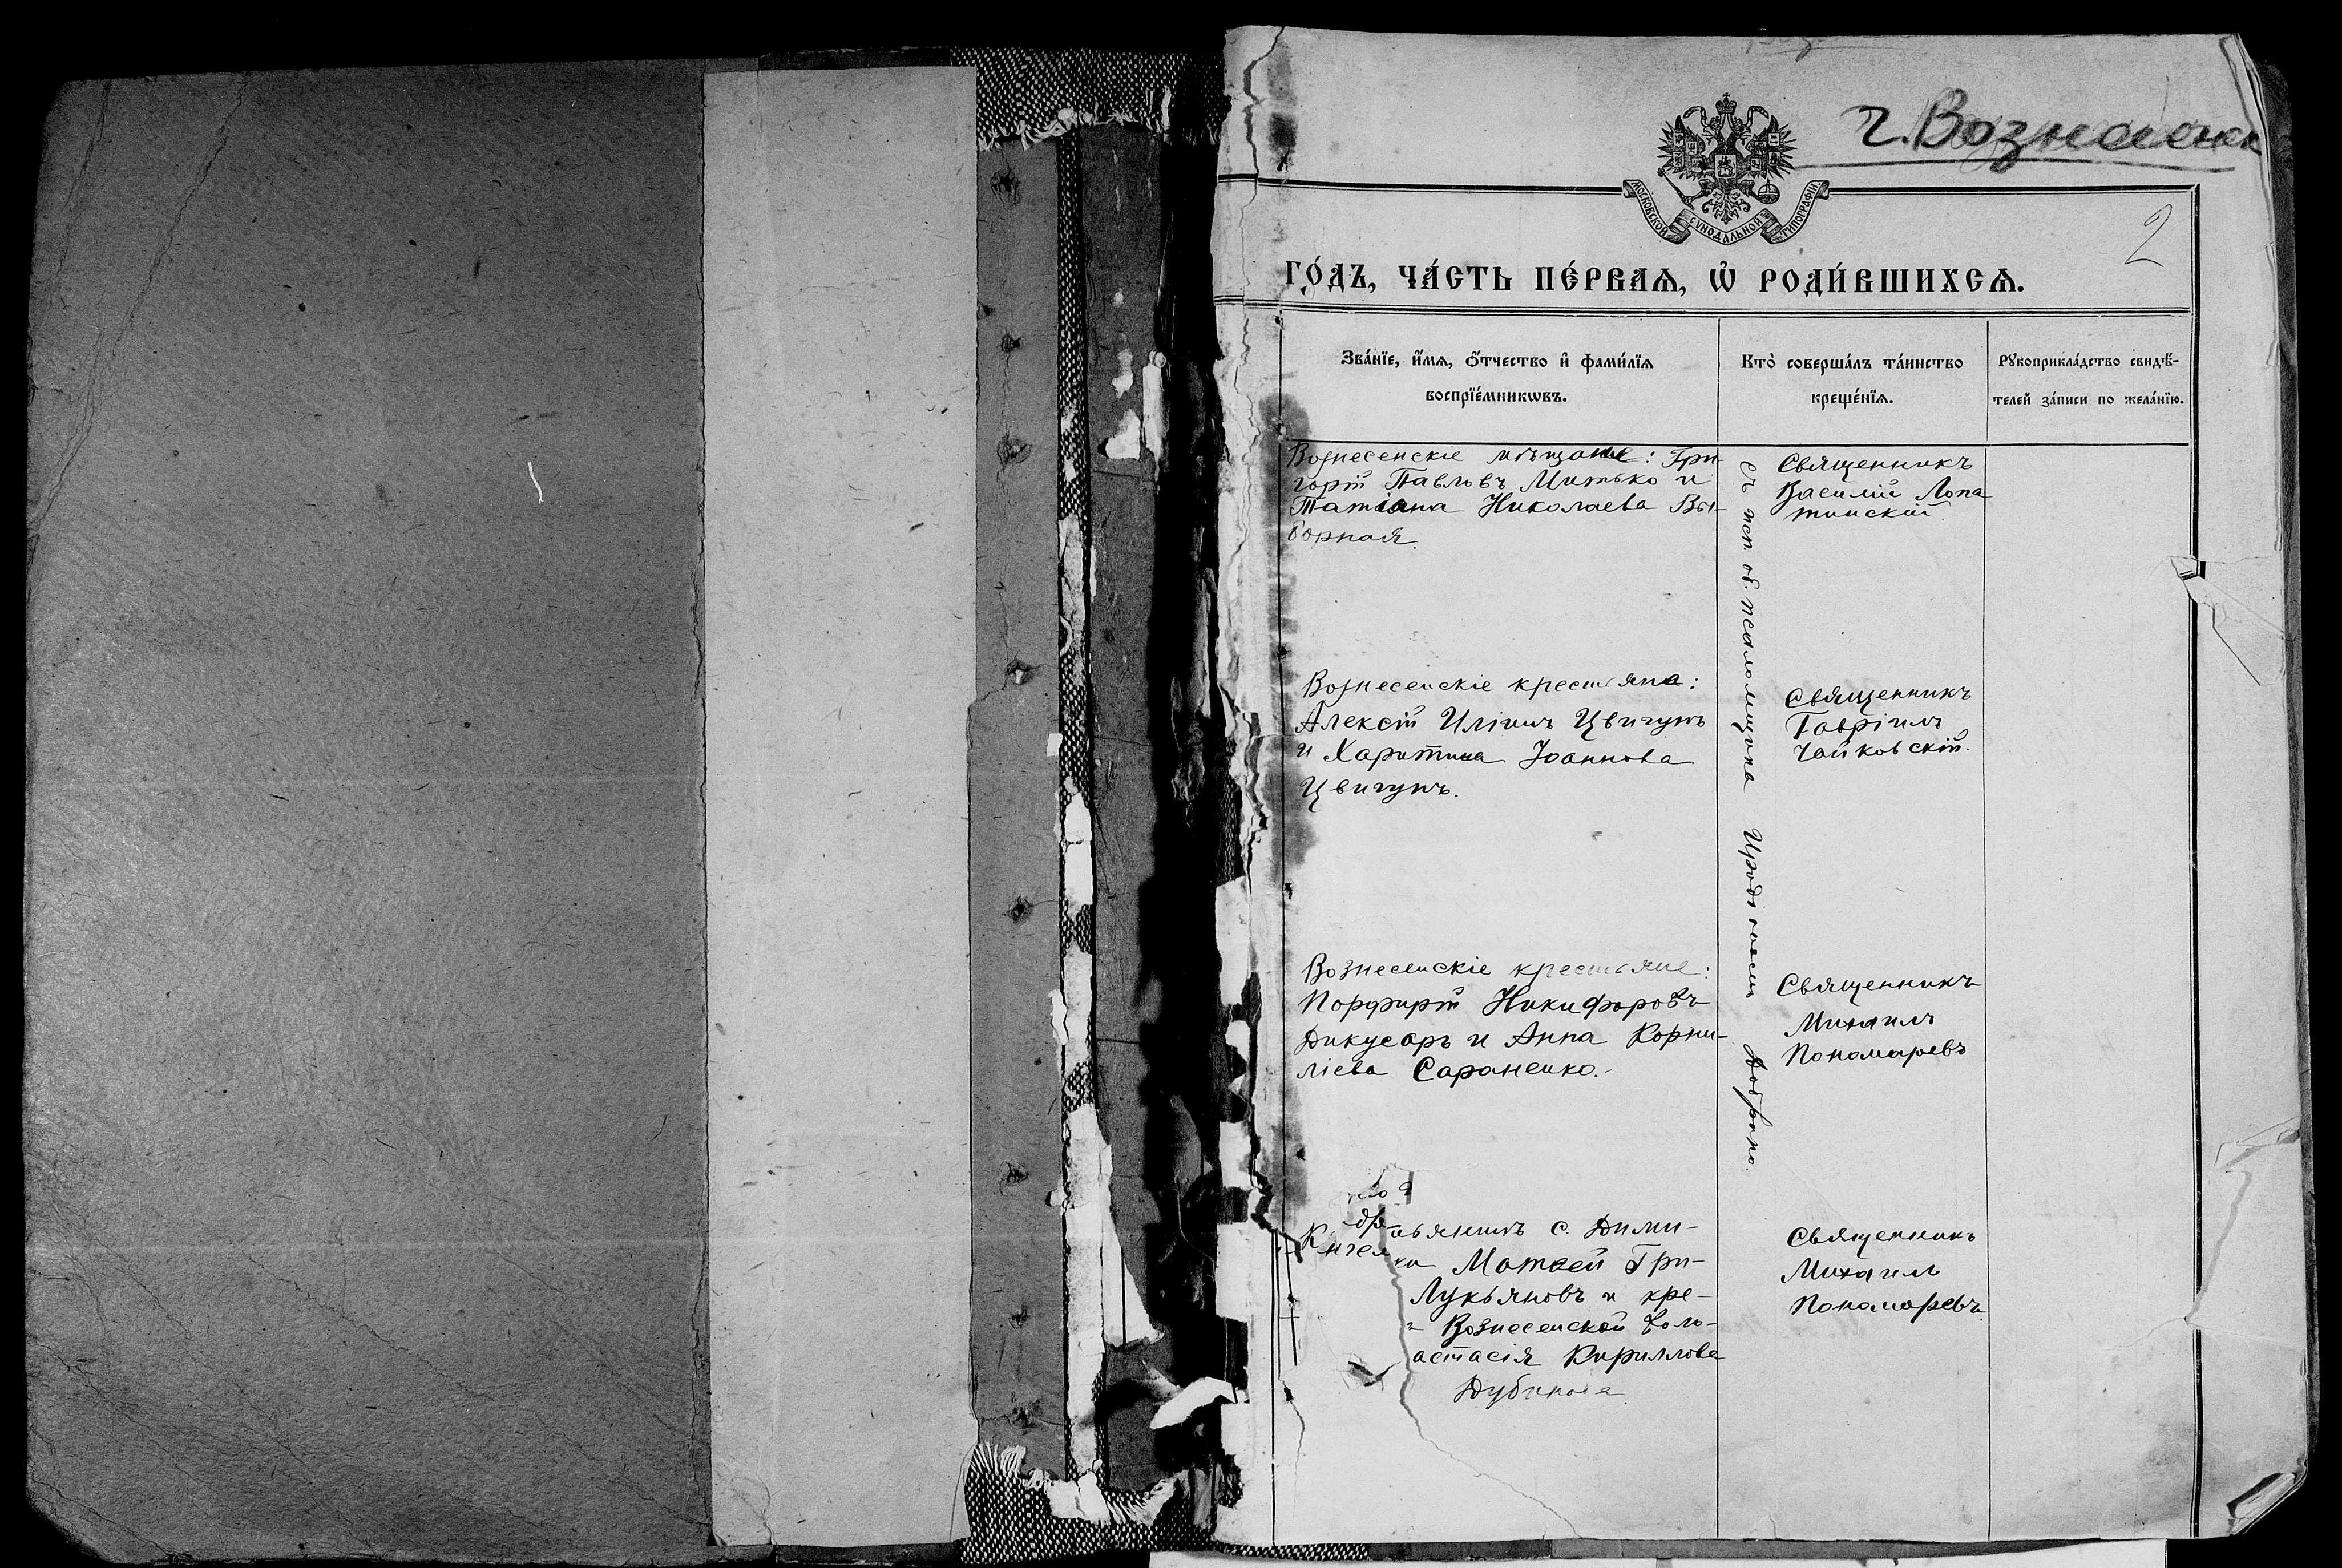 г. Вознесенск
МОСКОВСКОЙ СѴНОДАЛЬНОЙ ТИПОГРАФІИ
2
ГО́ДЪ, ЧА́СТЬ ПЕ́РВАѦ, Ѡ҆ РОДИ́ВШИХСѦ.
Зва́нїе, и҆́мѧ, о҆́тчество и҆ фами́лїѧ
воспрїе́мникѡвъ.
Кто̀ соверша́лъ та́инство
креще́нїѧ.
Рꙋкоприкла́дство свидѣ́-
телей за́писи по жела́нїю.
Вознесенскіе мѣщане: Гри-
горій Павловъ Митько и
Татіана Николаева Вы-
борная.
Священникъ
Василій Лопа
тинскій
съ исп. об. псаломщика Иродіономъ
Вознесенскіе крестьяне:
Алексій Иліинъ Цвигунъ
и Харитина Іоаннова
Цвигунъ.
Священникъ
Гавріилъ
Чайковскій.
Вознесенскіе крестьяне:
Порфирій Никифоровъ
Дикусаръ и Анна Корни-
ліева Сараненко.
Священникъ
Михаилъ
Пономаревъ
с. Дими-
Матвей Гри-
Лукьяновъ и кре-
Вознесенской воло-
астасія Кириллова
Дубинова
Священникъ
Михаилъ
Пономаревъ